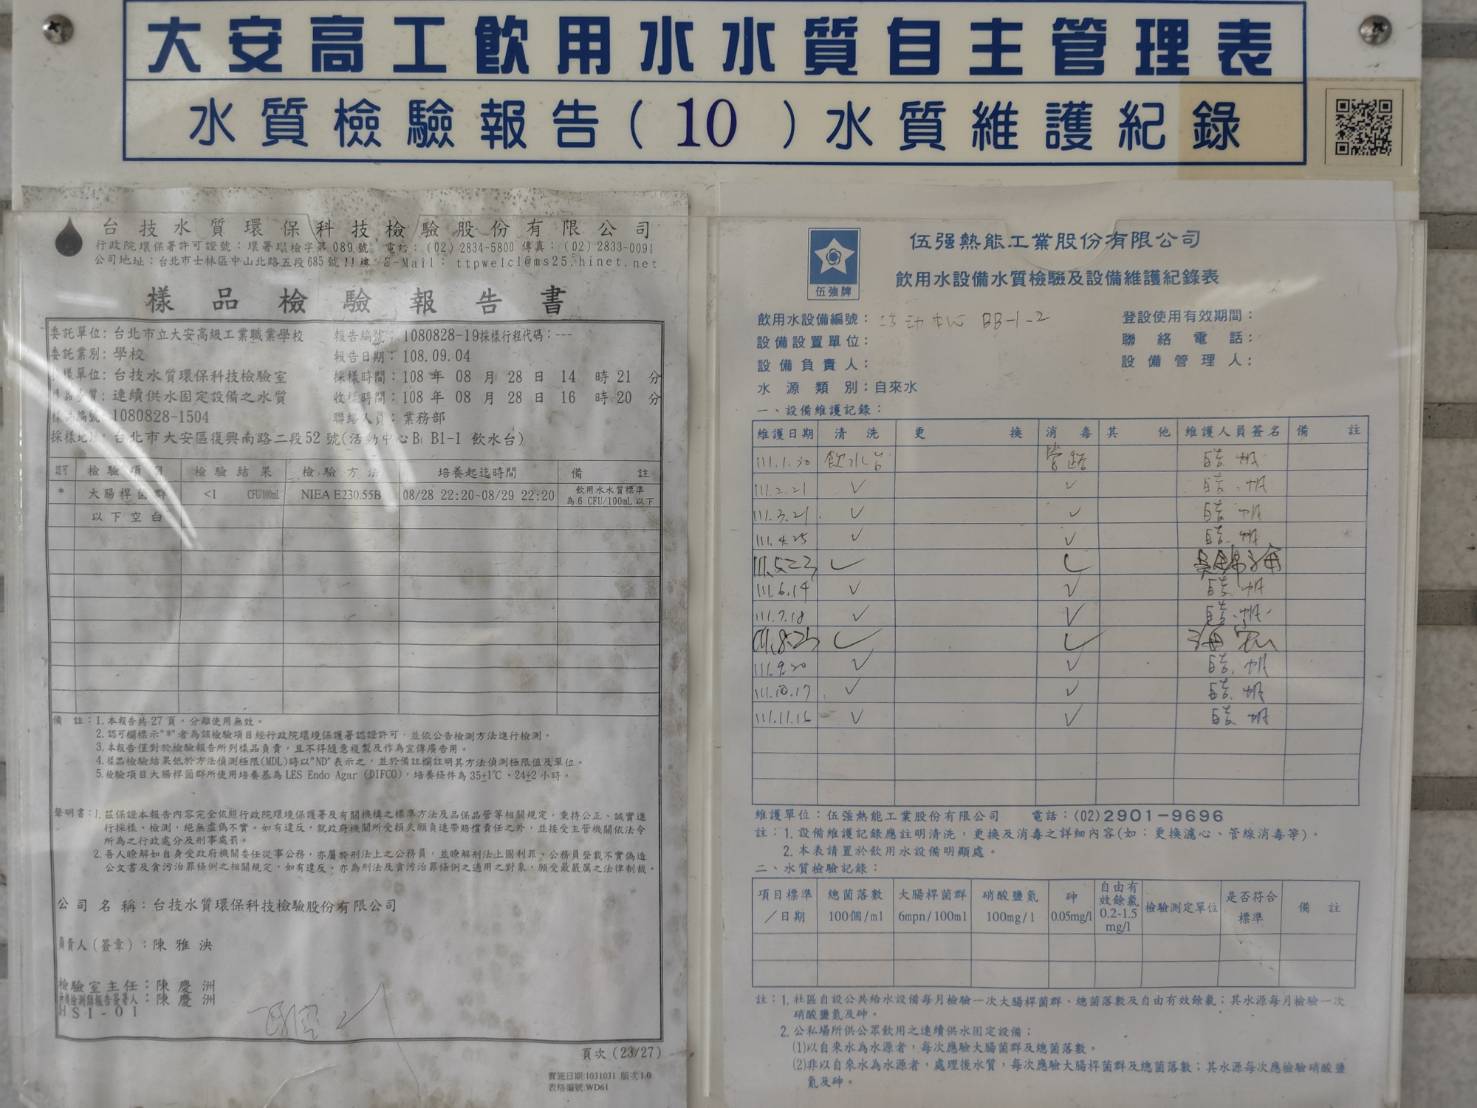 大安高工飲用水水質自主管理表
水質檢驗報告(10)水質維護紀錄
台技水質環保科技檢驗股份有限公司
行政院環保署許可證號：環署環檢字第089號 電話：(02)2834-5800 傳真：(02)2833-0091
公司地址：台北市士林區中山北路五段685號11樓 E-Mail：ttpwelcl@ms25.hinet.net
樣品檢驗報告書
委託單位：台北市立大安高級工業職業學校 報告編號：1080828-19 採樣行程代碼：---
委託業別：學校 報告日期：108.09.04
採樣單位：台技水質環保科技檢驗室 採樣時間：108 年 08 月 28 日 14 時 21 分
樣品品質：連續供水固定設備之水質 收樣時間：108 年 08 月 28 日 16 時 20 分
樣品編號：1080828-1504 聯絡人員：業務部
採樣地址：台北市大安區復興南路二段52號(活動中心B B1-1 飲水台)
認可 檢驗項目 檢驗結果 檢驗方法 培養起迄時間 備註
* 大腸桿菌群 <1 CFU/100mL NIEA E230.55B 08/28 22:20~08/29 22:20 飲用水水質標準
為6 CFU/100mL以下
以下空白
備 註：1.本報告共27頁，分離使用無效。
2.認可欄標示"*"者為該檢驗項目經行政院環境保護署認證許可，並依公告檢測方法進行檢測。
3.本報告僅對於檢驗報告所列樣品負責，且不得隨意複製及作為宣傳廣告用。
4.樣品檢驗結果低於方法偵測極限(MDL)時以"ND"表示之，並於備註欄註明其方法偵測極限值及單位。
5.檢驗項目大腸桿菌群所使用培養基為LES Endo Agar (DIFCO)，培養條件為35±1℃、24±2小時。
聲明書：1.茲保證本報告內容完全依照行政院環境保護署及有關機構之標準方法及品保品管等相關規定，秉持公正、誠實進
行採樣、檢測，絕無虛偽不實，如有違反，就政府機關所受損失願負連帶賠償責任之外，並接受主管機關依法令
所為之行政處分及刑事處罰。
2.吾人瞭解如自身受政府機關委任從事公務，亦屬於刑法上之公務員，並瞭解刑法上圖利罪、公務員登載不實偽造
公文書及貪污治罪條例之相關規定，如有違反，亦為刑法及貪污治罪條例之適用之對象，願受最嚴厲之法律制裁。
公司名稱：台技水質環保科技檢驗股份有限公司
負責人(簽章)：陳雅泱
檢驗室主任：陳慶洲
檢測類報告簽署人：陳慶洲
HSI-01
頁次(23/27)
實施日期:1031031 版次1.0
表格編號:WD61
伍強牌
伍強熱能工業股份有限公司
飲用水設備水質檢驗及設備維護紀錄表
飲用水設備編號：活動中心 BB-1-2 登設使用有效期間：
設備設置單位： 聯絡電話：
設備負責人： 設備管理人：
水源類別：自來水
一、設備維護記錄：
維護日期 清洗 更換 消毒 其他 維護人員簽名 備註
111.1.20 飲水台 管路
111.2.21 ✓ ✓
111.3.21 ✓ ✓
111.4.25 ✓ ✓
111.5.23 ✓ ✓
111.6.14 ✓ ✓
111.7.18 ✓ ✓
111.8.23 ✓ ✓
111.9.20 ✓ ✓
111.10.17 ✓ ✓
111.11.16 ✓ ✓
維護單位：伍強熱能工業股份有限公司 電話：(02)2901-9696
註：1.設備維護記錄應註明清洗，更換及消毒之詳細內容(如：更換濾心、管線消毒等)。
2.本表請置於飲用水設備明顯處。
二、水質檢驗記錄：
項目標準/日期 總菌落數 100個/ml 大腸桿菌群 6mpn/100ml 硝酸鹽氮 100mg/l 砷 0.05mg/l 自由有效餘氯 0.2-1.5 mg/l 檢驗測定單位 是否符合標準 備註
註：1.社區自設公共給水設備每月檢驗一次大腸桿菌群、總菌落數及自由有效餘氯；其水源每月檢驗一次
硝酸鹽氮及砷。
2.公私場所供公眾飲用之連續供水固定設備：
(1)以自來水為水源者，每次應驗大腸菌群及總菌落數。
(2)非以自來水為水源者，處理後水質，每次應驗大腸桿菌群及總菌落數；其水源每次應檢驗硝酸鹽
氮及砷。